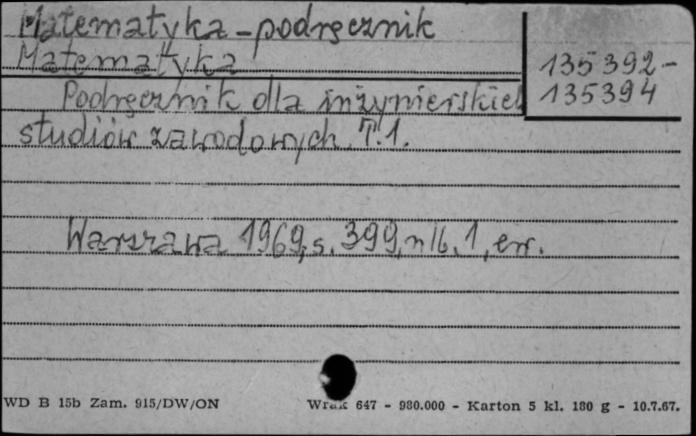 Matematyka - podręcznik
Matematyka
135 392 -
135394
Podręcznik dla inżynierskich
studiów zawodowych. T.1.
Warszawa 1969, s. 399, nlb. 1, err.
WD B 15b Zam. 915/DW/ON
Wrak 647 - 980.000 - Karton 5 kl. 180 g - 10.7.67.